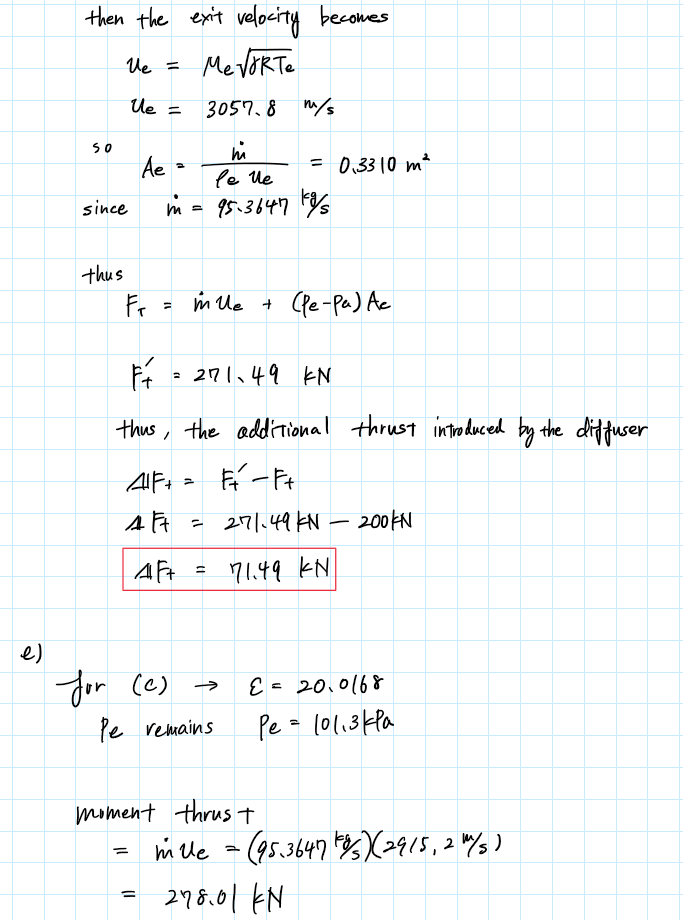 then the exit velocity becomes
Ue = Me√γRTe
Ue = 3057.8 m/s
so
Ae = ṁ / ρe Ue = 0.3310 m²
since ṁ = 95.3647 kg/s
thus
FT = ṁ Ue + (Pe-Pa) Ae
Ft′ = 271.49 kN
thus, the additional thrust introduced by the diffuser
ΔFt = Ft′ - Ft
ΔFt = 271.49 kN - 200 kN
ΔFt = 71.49 kN
e)
for (c) → ε = 20.0168
Pe remains Pe = 101.3 kPa
moment thrust
= ṁ Ue = (95.3647 kg/s)(2915.2 m/s)
= 278.01 kN